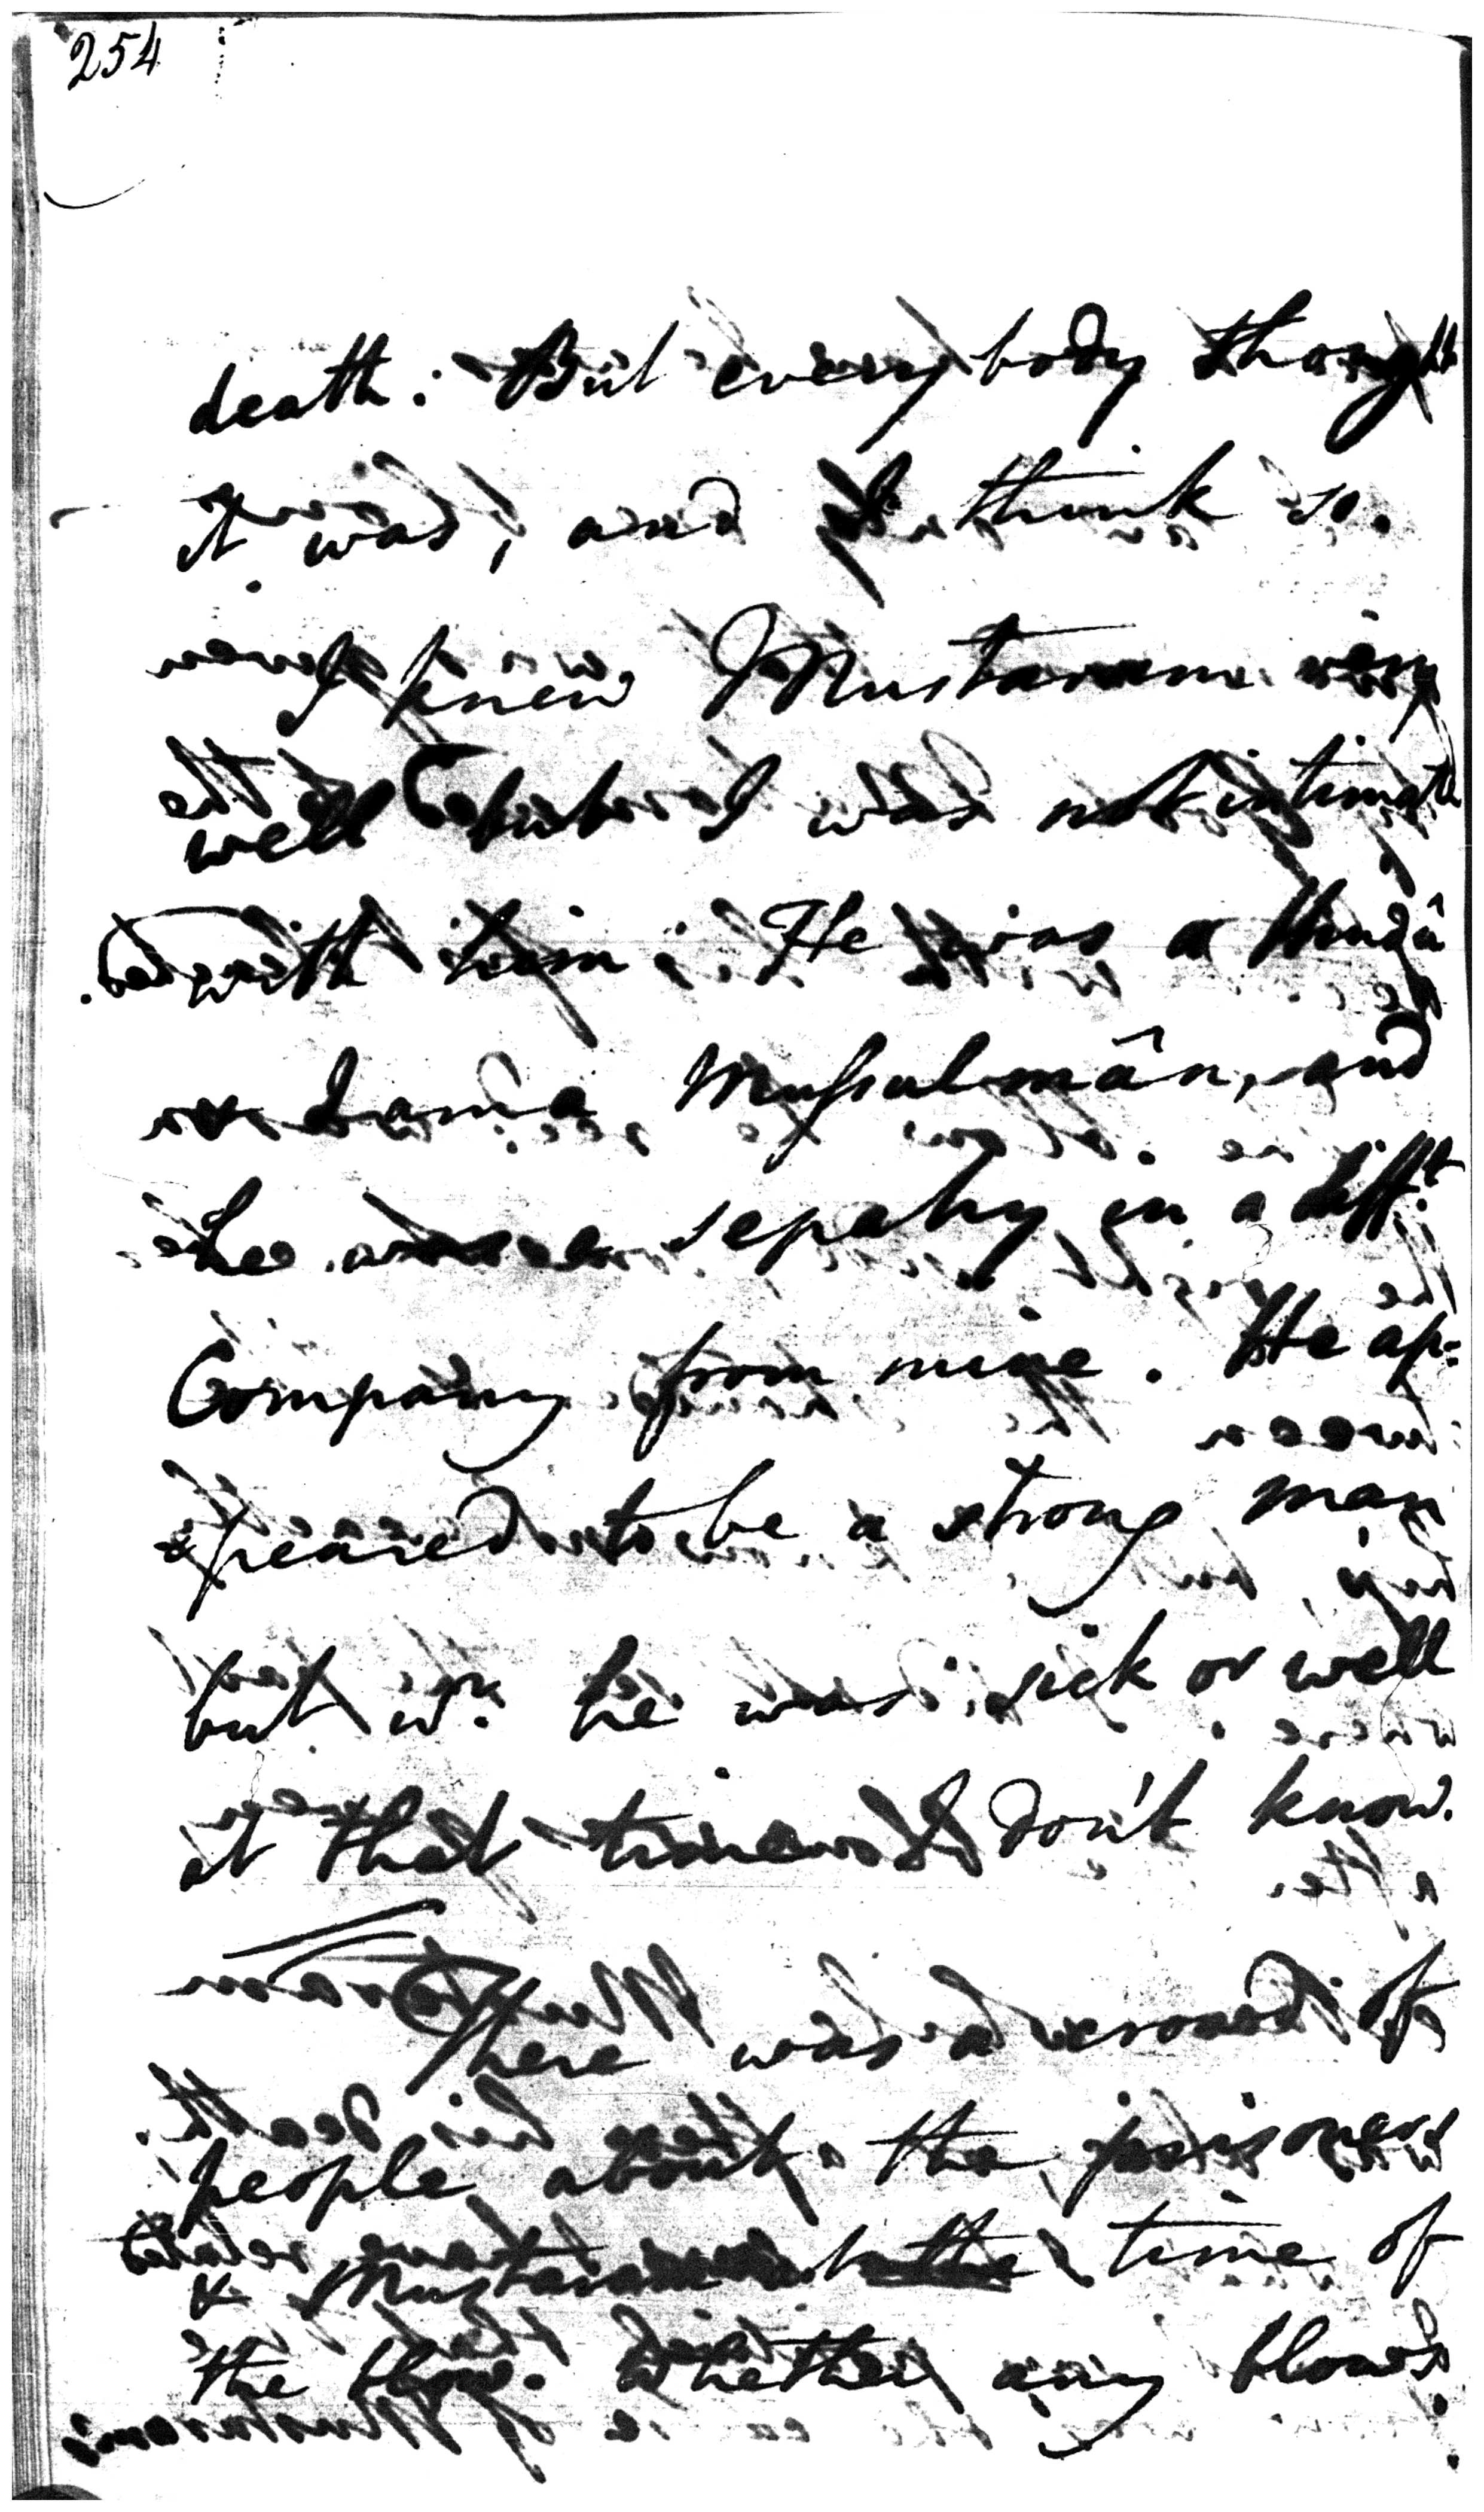 254
death. But everybody thought
it was, and I think so.
I knew Mustaram very
well but I was not intimate
with him. He was a
Mussulmân, and
he was a sepahy in a difft.
Company from mine. He ap=
peared to be a strong man
but wr. he was sick or well
at that time I don't know.
There was a crowd of
people about the prisoner
& Mustaram at the time of
the blow. Whether any blows